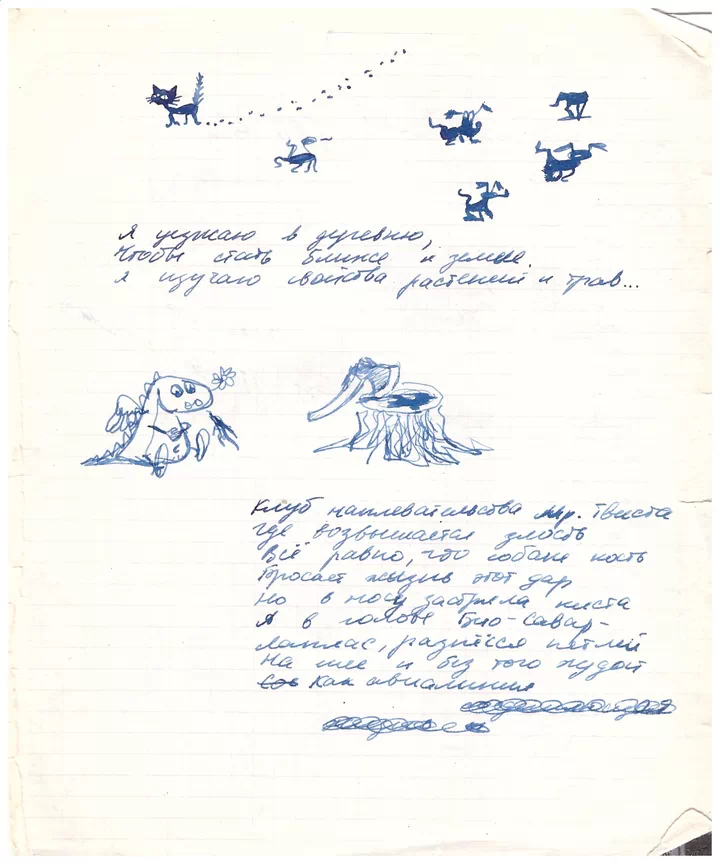 Я уезжаю в деревню,
Чтобы стать ближе к земле.
Я изучаю свойства растений и трав...
Клуб наплевательства мр. Твиста
Где возвышается злость
Всё равно, что собаке кость
Бросает жизнь этот дар
Но в носу застряла киста
А в голове Био-Савар-
Лаплас, разнёсся петлёй
На шее и без того худой
Как авиалиния